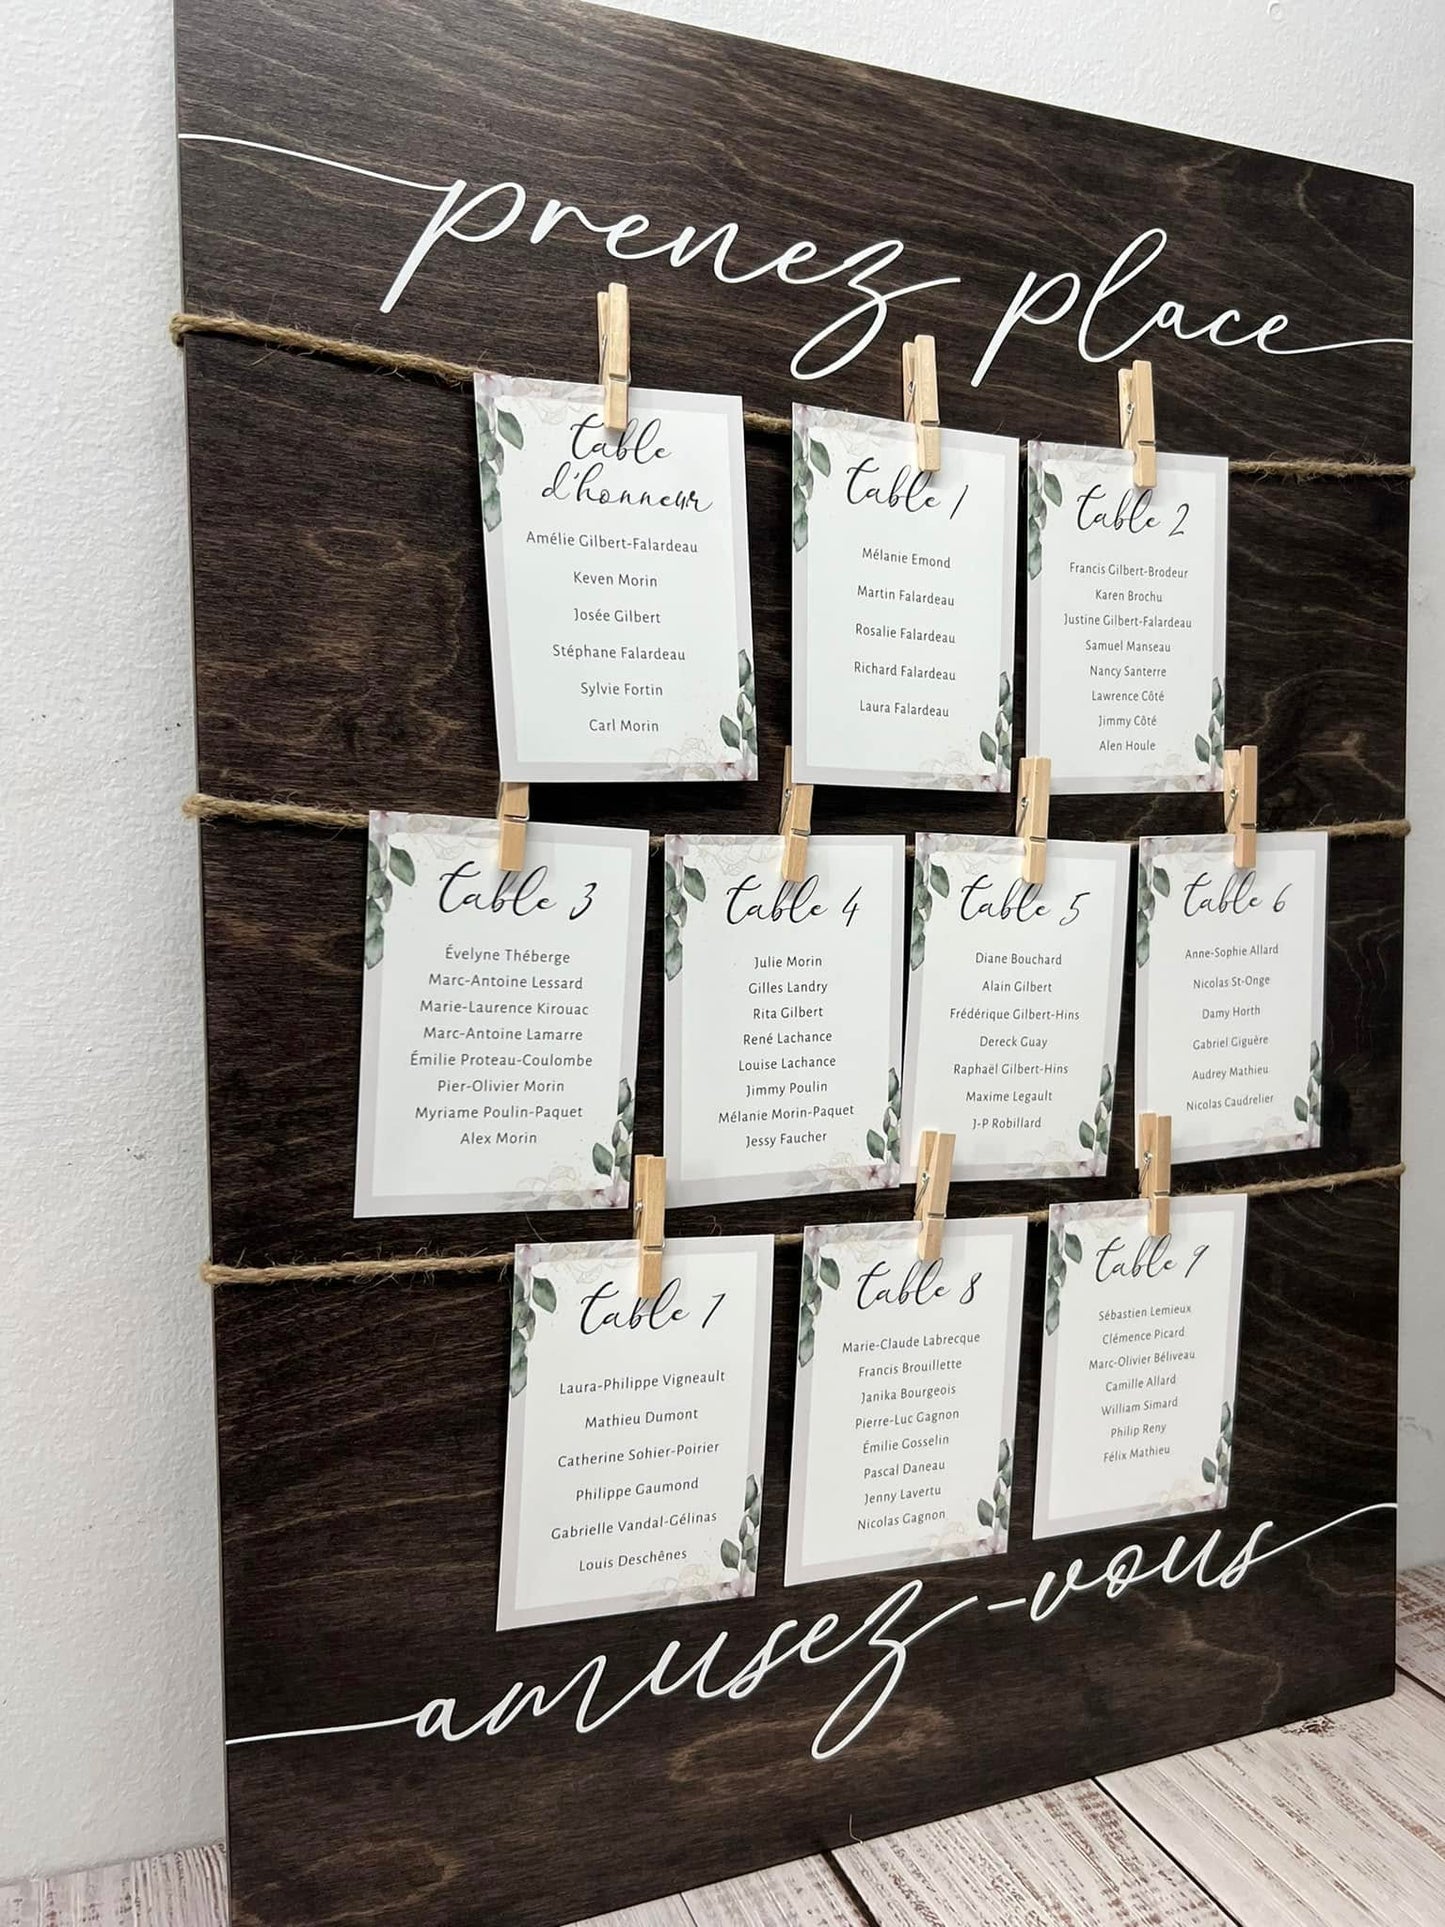 prenez place
table
d'honneur
Amélie Gilbert-Falardeau
Keven Morin
Josée Gilbert
Stéphane Falardeau
Sylvie Fortin
Carl Morin
table 1
Mélanie Emond
Martin Falardeau
Rosalie Falardeau
Richard Falardeau
Laura Falardeau
table 2
Francis Gilbert-Brodeur
Karen Brochu
Justine Gilbert-Falardeau
Samuel Manseau
Nancy Santerre
Lawrence Côté
Jimmy Côté
Alen Houle
table 3
Évelyne Théberge
Marc-Antoine Lessard
Marie-Laurence Kirouac
Marc-Antoine Lamarre
Émilie Proteau-Coulombe
Pier-Olivier Morin
Myriame Poulin-Paquet
Alex Morin
table 4
Julie Morin
Gilles Landry
Rita Gilbert
René Lachance
Louise Lachance
Jimmy Poulin
Mélanie Morin-Paquet
Jessy Faucher
table 5
Diane Bouchard
Alain Gilbert
Frédérique Gilbert-Hins
Dereck Guay
Raphaël Gilbert-Hins
Maxime Legault
J-P Robillard
table 6
Anne-Sophie Allard
Nicolas St-Onge
Damy Horth
Gabriel Giguère
Audrey Mathieu
Nicolas Caudrelier
table 7
Laura-Philippe Vigneault
Mathieu Dumont
Catherine Sohier-Poirier
Philippe Gaumond
Gabrielle Vandal-Gélinas
Louis Deschênes
table 8
Marie-Claude Labrecque
Francis Brouillette
Janika Bourgeois
Pierre-Luc Gagnon
Émilie Gosselin
Pascal Daneau
Jenny Lavertu
Nicolas Gagnon
table 9
Sébastien Lemieux
Clémence Picard
Marc-Olivier Béliveau
Camille Allard
William Simard
Philip Reny
Félix Mathieu
amusez-vous